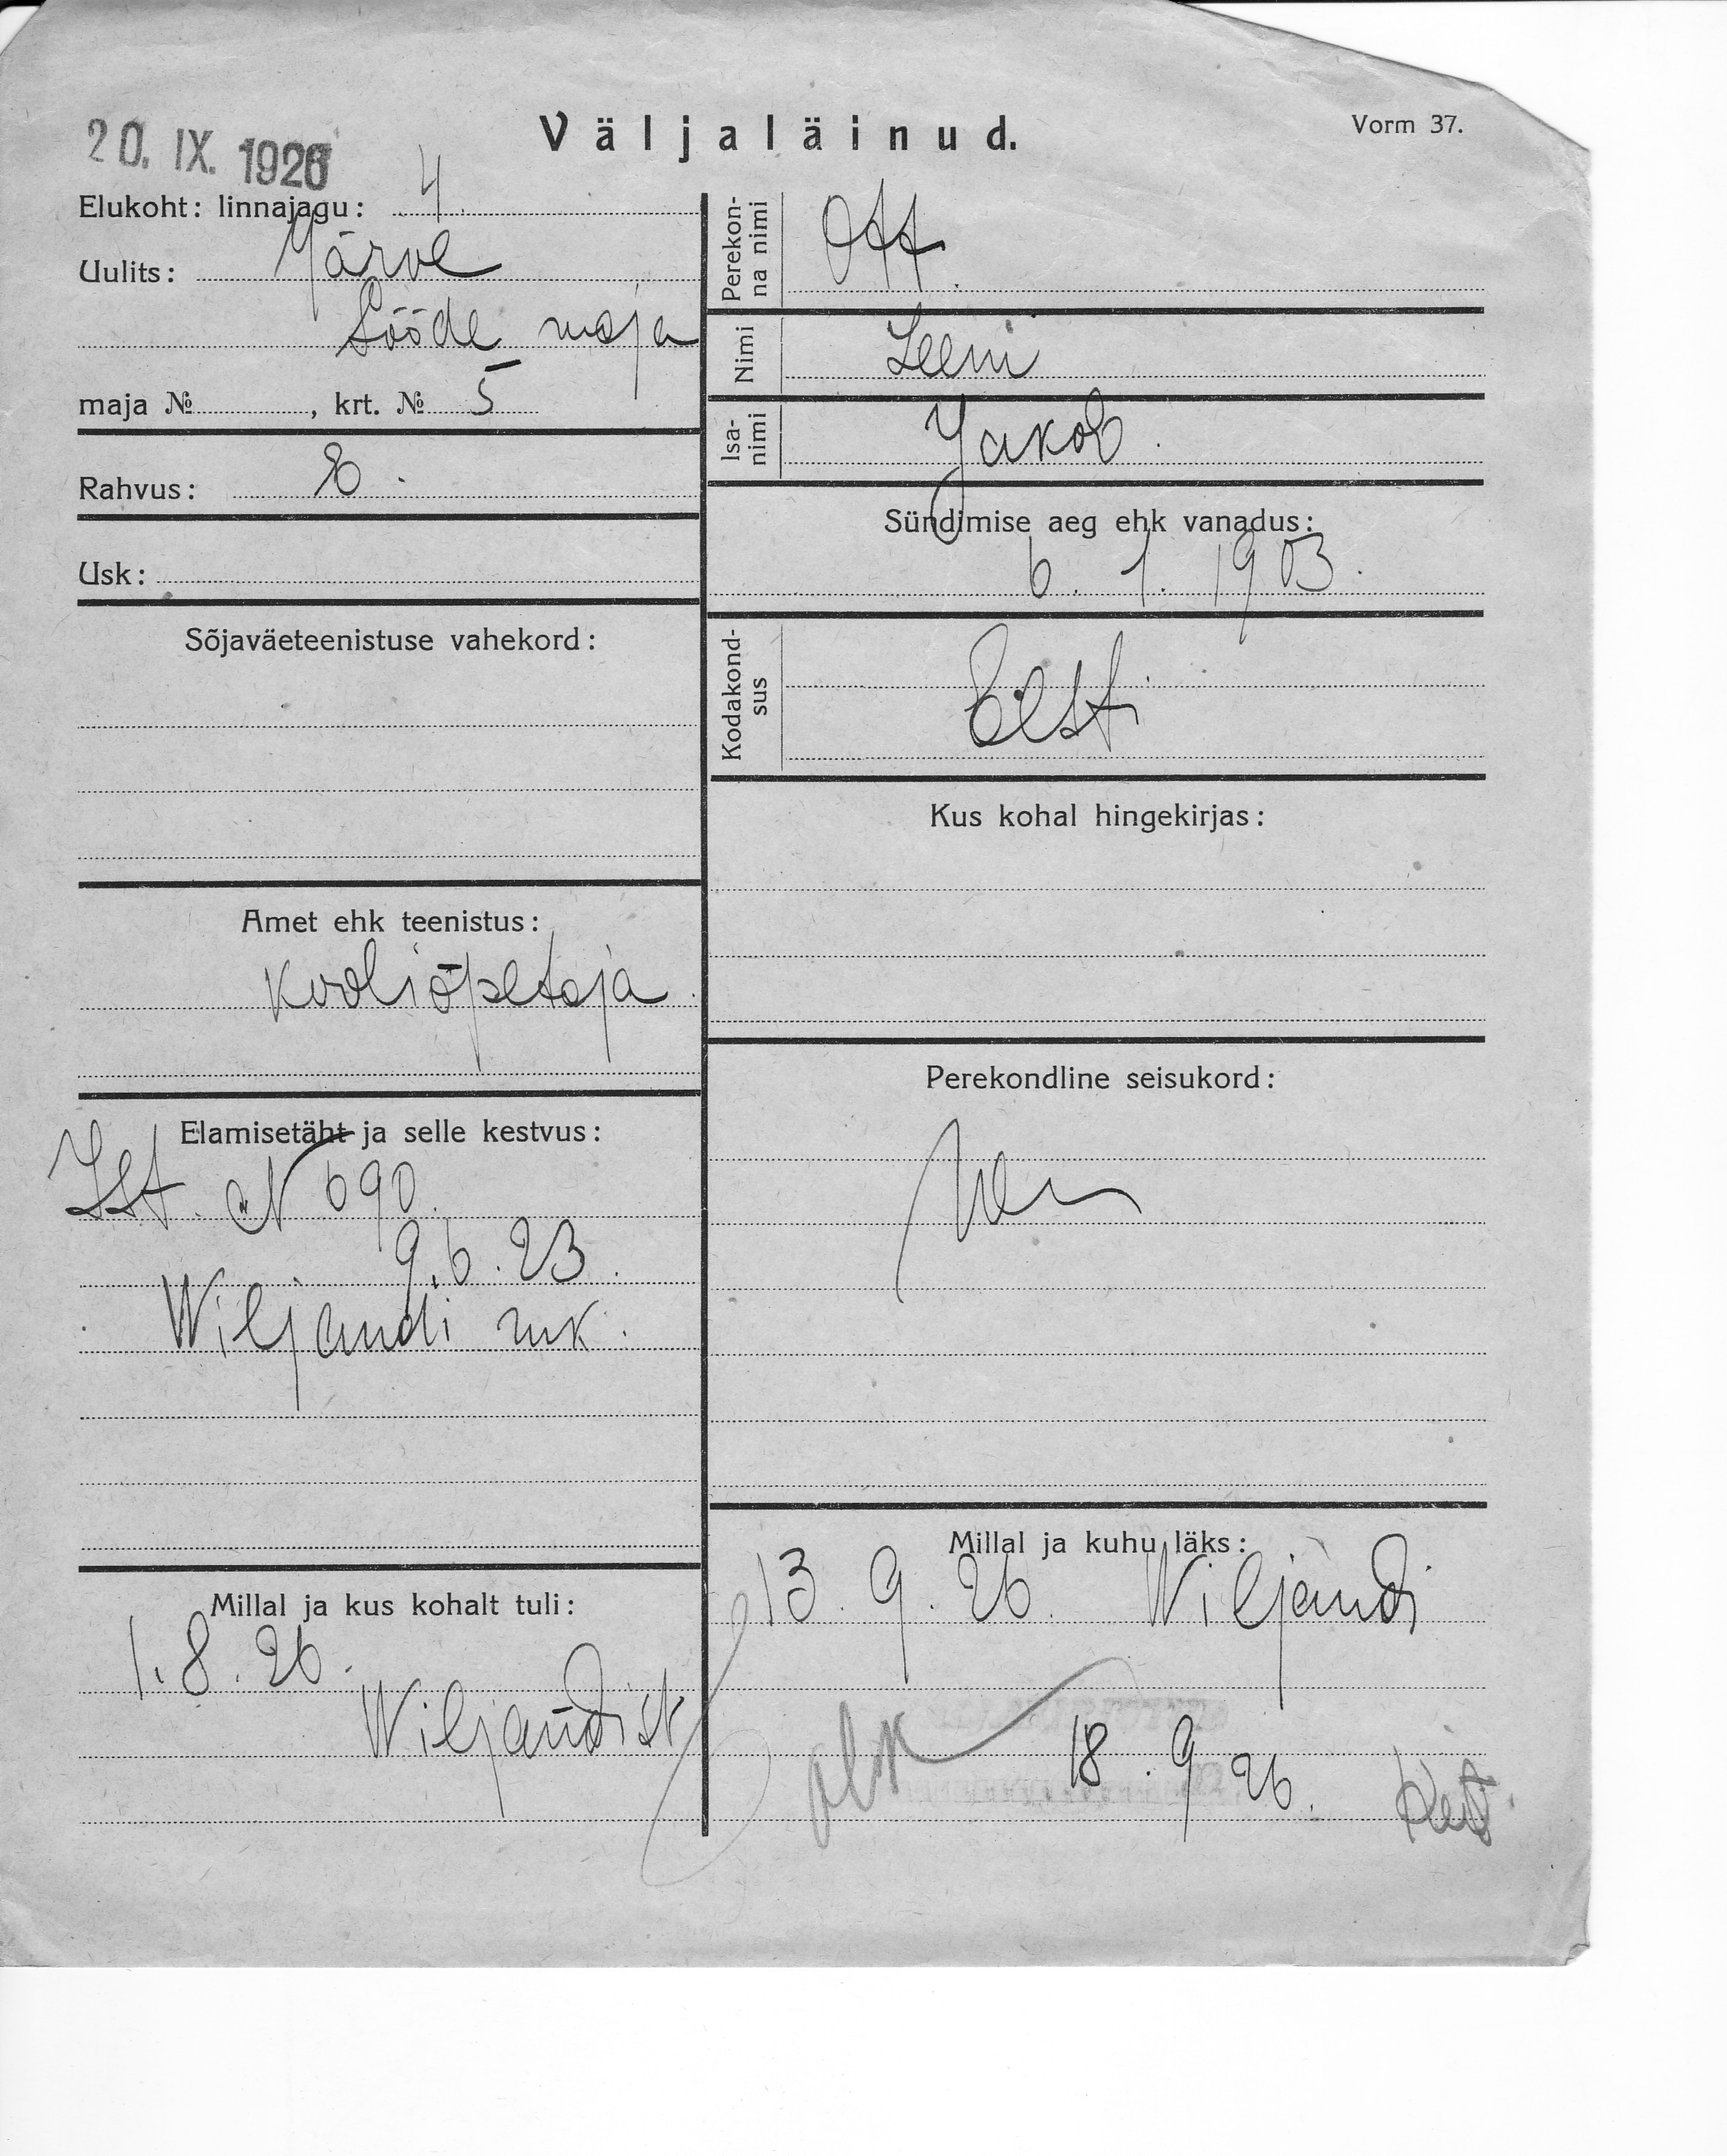 20. IX. 1926
Väljaläinud.
Vorm 37.
Elukoht: linnajagu: 4
Uulits: Järve
Sööde maja
maja №, krt. № 5
Rahvus: E.
Usk:
Sõjaväeteenistuse vahekord:
Amet ehk teenistus:
kooliõpetaja
Elamisetäht ja selle kestvus:
Ist. N 690.
9.6.23.
Wiljandi
Millal ja kus kohalt tuli:
1.8.26.
Wiljandist
Perekonna nimi Ott.
Nimi Leeni
Isanimi Jakob.
Sündimise aeg ehk vanadus:
6. 1. 1903.
Kodakondsus Eesti
Kus kohal hingekirjas:
Perekondline seisukord:
Millal ja kuhu läks:
13. 9. 26. Wiljandi
18. 9 26.